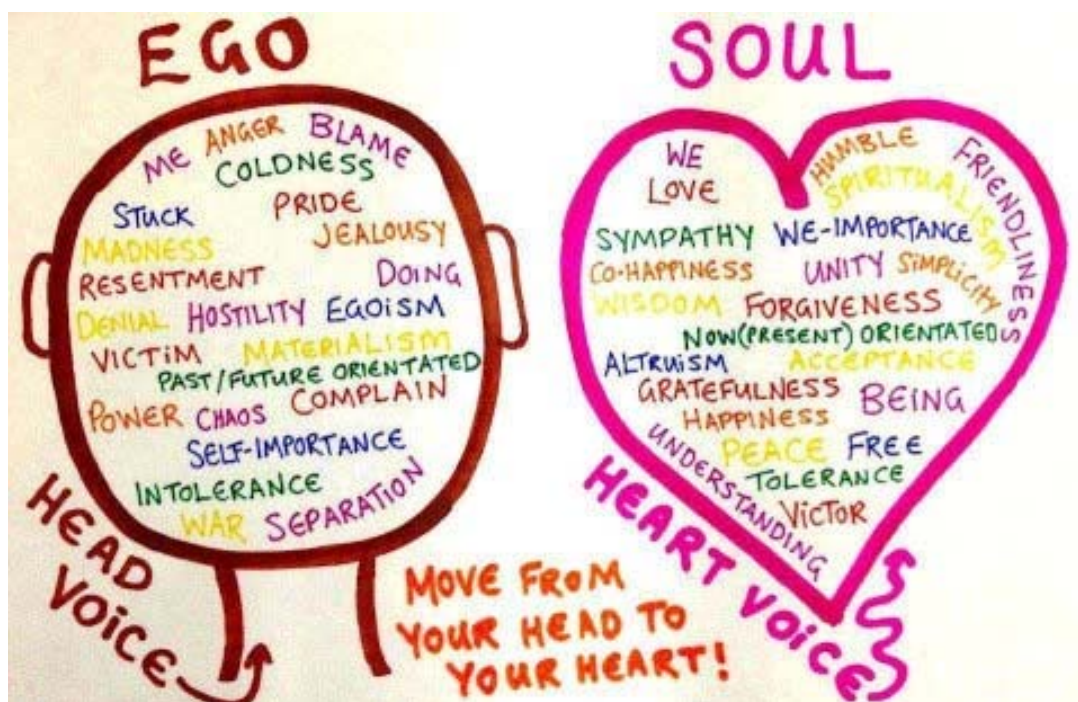 EGO
ME ANGER BLAME
COLDNESS
STUCK PRIDE
MADNESS JEALOUSY
RESENTMENT DOING
DENIAL HOSTILITY EGOiSM
ViCTiM MATERiALiSM
PAST/FUTURE ORIENTATED
POWER CHAOS COMPLAIN
SELF-IMPORTANCE
INTOLERANCE
WAR SEPARATION
HEAD
VOiCE
MOVE FROM
YOUR HEAD TO
YOUR HEART!
SOUL
WE HUMBLE FRIENDLINESS
LOVE SPIRITUALISM
SYMPATHY WE-IMPORTANCE
CO-HAPPINESS UNITY SiMPLiCiTY
WISDOM FORGIVENESS
NOW(PRESENT) ORIENTATED
ALTRUiSM ACCEPTANCE
GRATEFULNESS BEING
HAPPINESS
PEACE FREE
UNDERSTANDING TOLERANCE
ViCTOR
HEART VOiCE